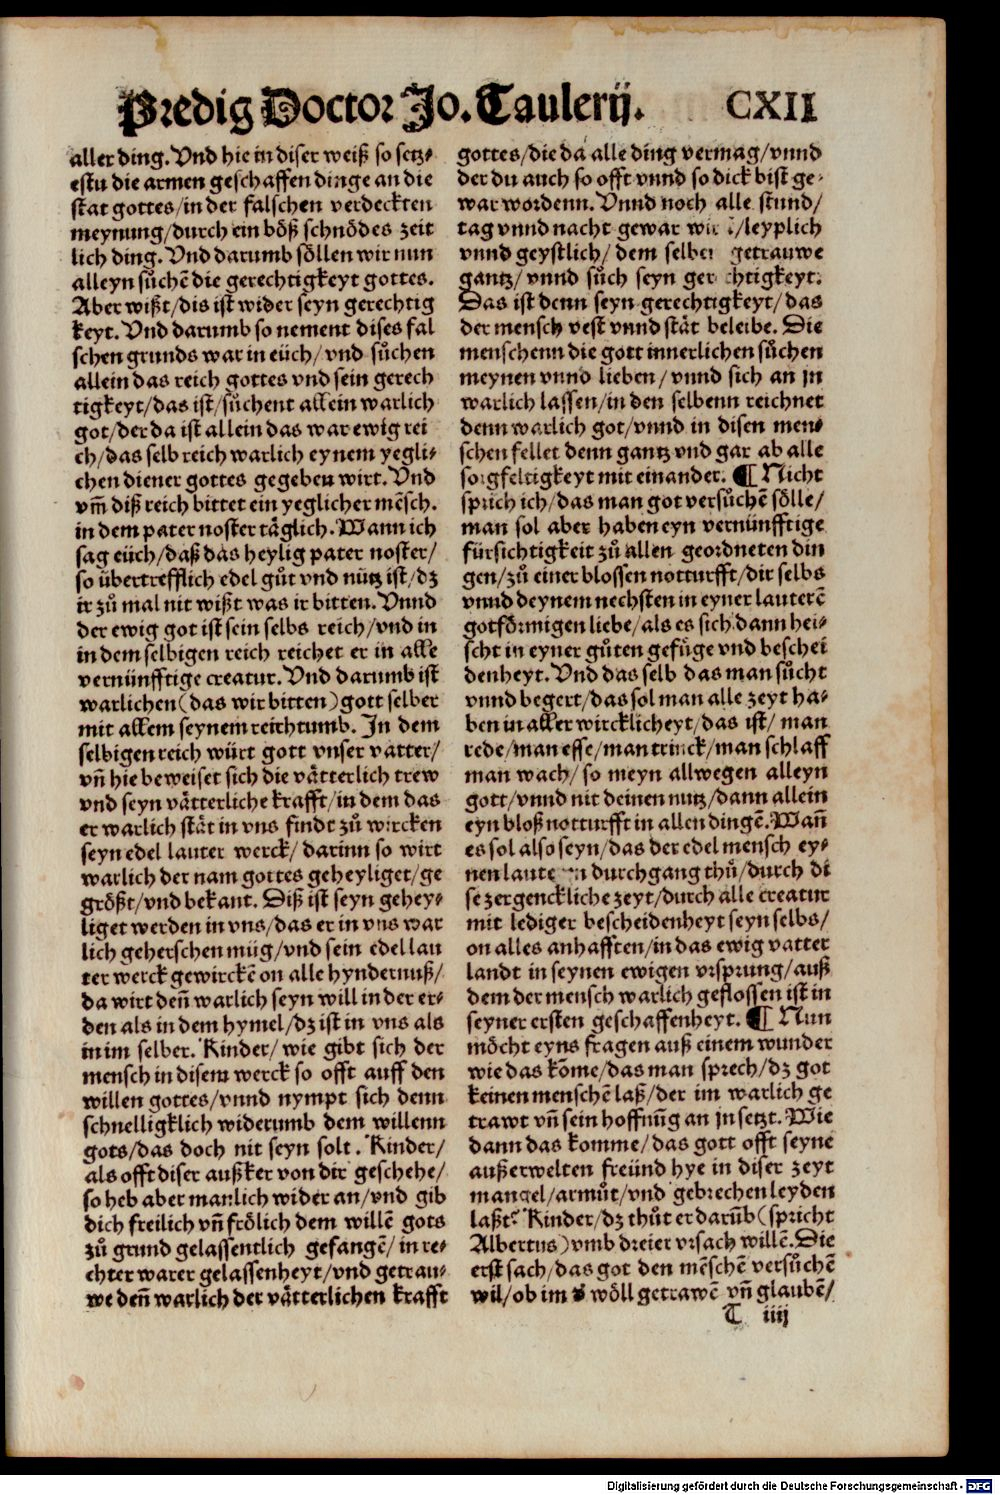 Predig Doctor Jo. Taulerij. CXII
aller ding. Vnd hie in diser weiß so setz⸗
estu die armen geschaffen dinge an die
stat gottes/in der falschen verdeckten
meynung/durch ein böß schnödes zeit
lich ding. Vnd darumb söllen wir nun
alleyn sůchē die gerechtigkeyt gottes.
Aber wißt/dis ist wider seyn gerechtig
keyt. Vnd darumb so nement dises fal
schen grunds war in eüch/vnd sůchen
allein das reich gottes vnd sein gerech
tigkeyt/das ist/sůchent allein warlich
got/der da ist allein das war ewig rei
ch/das selb reich warlich eynem yegli⸗
chen diener gottes gegeben wirt. Vnd
vm̄ diß reich bittet ein yeglicher mēsch.
in dem pater noster täglich. Wann ich
sag eüch/daß das heylig pater noster/
so übertrefflich edel gůt vnd nütz ist/dz
ir zů mal nit wißt was ir bitten. Vnnd
der ewig got ist sein selbs reich/vnd in
in dem selbigen reich reichet er in alle
vernünfftige creatur. Vnd darumb ist
warlichen(das wir bitten)gott selber
mit allem seynem reichtumb. In dem
selbigen reich würt gott vnser vatter/
vñ hie beweiset sich die vätterlich trew
vnd seyn vätterliche krafft/in dem das
er warlich stät in vns findt zů wircken
seyn edel lauter werck/darinn so wirt
warlich der nam gottes geheyliget/ge
größt/vnd bekant. Diß ist seyn gehey⸗
liget werden in vns/das er in vns war
lich geherschen müg/vnd sein edel lau
ter werck gewirckē on alle hyndernuß/
da wirt deñ warlich seyn will in der er⸗
den als in dem hymel/dz ist in vns als
in im selber. Kinder/wie gibt sich der
mensch in disem werck so offt auff den
willen gottes/vnnd nympt sich denn
schnelligklich widerumb dem willenn
gots/das doch nit seyn solt. Kinder/
als offt diser außker von dir geschehe/
so heb aber manlich wider an/vnd gib
dich freilich vñ frölich dem willē gots
zů grund gelassentlich gefangē/in re⸗
chter warer gelassenheyt/vnd getrau⸗
we deñ warlich der vätterlichen krafft
gottes/die da alle ding vermag/vnnd
der du auch so offt vnnd so dick bist ge⸗
war wordenn. Vnnd noch alle stund/
tag vnnd nacht gewar /leyplich
vnnd geystlich/dem selben getrauwe
gantz/vnnd sůch seyn gerechtigkeyt.
Das ist denn seyn gerechtigkeyt/das
der mensch vest vnnd stät beleibe. Die
menschenn die gott innerlichen sůchen
meynen vnnd lieben/vnnd sich an jn
warlich lassen/in den selbenn reichnet
denn warlich got/vnnd in disen men⸗
schen fellet denn gantz vnd gar ab alle
sorgfeltigkeyt mit einander. ¶ Nicht
sprich ich/das man got versůchē sölle/
man sol aber haben eyn vernünfftige
fürsichtigkeit zů allen geordneten din
gen/zů einer blossen notturfft/dir selbs
vnnd deynem nechsten in eyner lauterē
gotförmigen liebe/als es sich dann hei⸗
scht in eyner gůten gefüge vnd beschei
denheyt. Vnd das selb das man sůcht
vnnd begert/das sol man alle zeyt ha⸗
ben in aller wircklicheyt/das ist/man
rede/man esse/man trinck/man schlaff
man wach/so meyn allwegen alleyn
gott/vnnd nit deinen nutz/dann allein
eyn bloß notturfft in allen dingē. Wañ
es sol also seyn/das der edel mensch ey⸗
nen durchgang thů/durch di
se zergenckliche zeyt/durch alle creatur
mit lediger bescheidenheyt seyn selbs/
on alles anhafften/in das ewig vatter
landt in seynen ewigen vrsprung/auß
dem der mensch warlich geflossen ist in
seyner ersten geschaffenheyt. ¶ Nun
möcht eyns fragen auß einem wunder
wie das kōme/das man sprech/dz got
keinen menschē laß/der im warlich ge
trawt vñ sein hoffnūg an jn setzt. Wie
dann das komme/das gott offt seyne
außerwelten freünd hye in diser zeyt
mangel/armůt/vnd gebrechen leyden
laßt? Kinder/dz thůt er darūb(spricht
Albertus)vmb dreier vrsach willē. Die
erst sach/das got den mēschē versůchen
wil/ob im d̕ wöll getrawē vñ glaubē/
T iiij
Digitalisierung gefördert durch die Deutsche Forschungsgemeinschaft - DFG